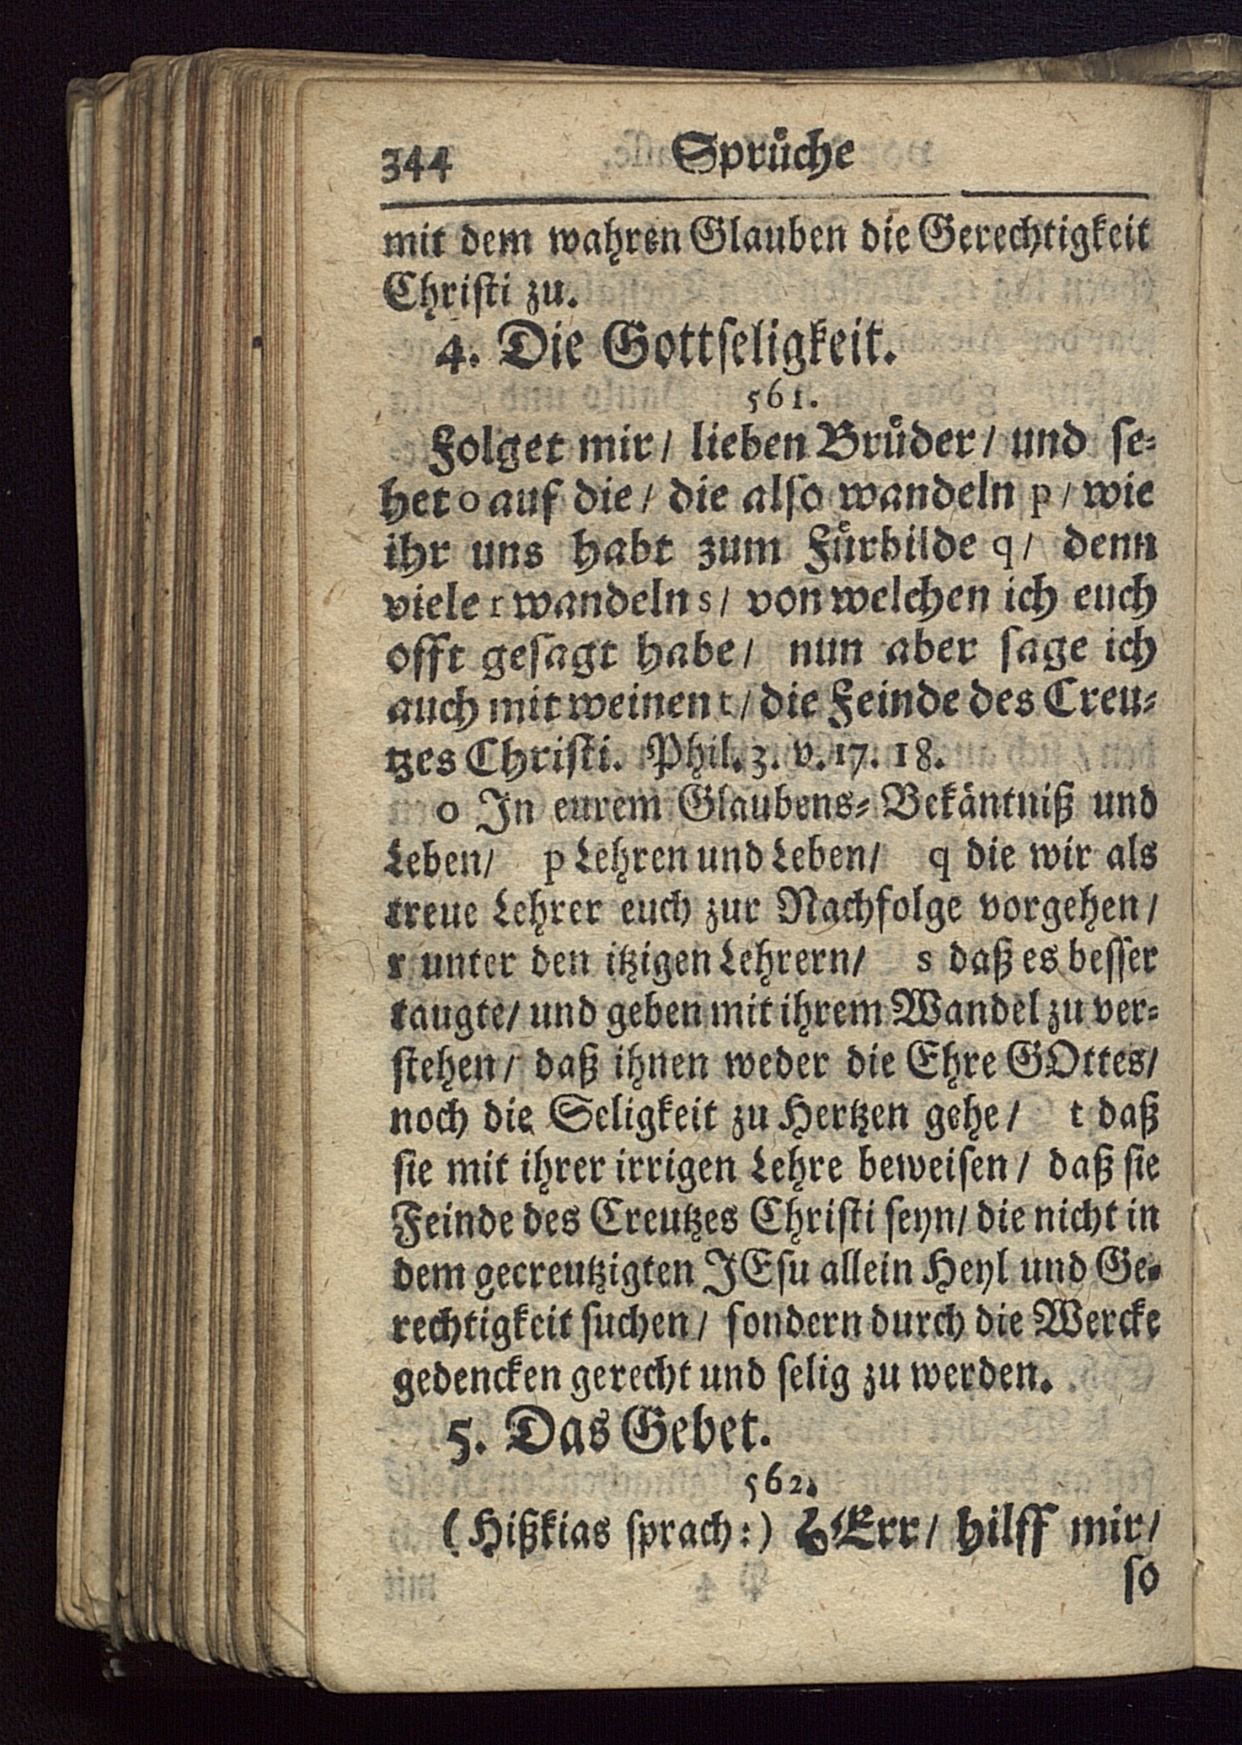 344 Sprüche
mit dem wahren Glauben die Gerechtigkeit
Christi zu.
4. Die Gottseligkeit.
561.
Folget mir/ lieben Brüder/ und se-
het o auf die/ die also wandeln p/ wie
ihr uns habt zum Fürbilde q/ denn
viele r wandeln s/ von welchen ich euch
offt gesagt habe/ nun aber sage ich
auch mit weinen t/ die Feinde des Creu-
tzes Christi. Phil. 3. v. 17. 18.
o In eurem Glaubens-Bekäntniß und
Leben/ p Lehren und Leben/ q die wir als
treue Lehrer euch zur Nachfolge vorgehen/
r unter den itzigen Lehrern/ s daß es besser
taugte/ und geben mit ihrem Wandel zu ver-
stehen/ daß ihnen weder die Ehre GOttes/
noch die Seligkeit zu Hertzen gehe/ t daß
sie mit ihrer irrigen Lehre beweisen/ daß sie
Feinde des Creutzes Christi seyn/ die nicht in
dem gecreutzigten JEsu allein Heyl und Ge-
rechtigkeit suchen/ sondern durch die Wercke
gedencken gerecht und selig zu werden.
5. Das Gebet.
562.
(Hißkias sprach:) HErr/ hilff mir/
so